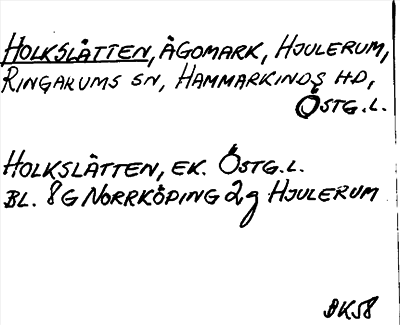 HOLKSLÅTTEN, ÄGOMARK, HJULERUM,
RINGARUMS SN, HAMMARKINDS HD,
ÖSTG.L.
HOLKSLÅTTEN, EK. ÖSTG.L.
BL. 8G NORRKÖPING 2g HJULERUM
BK58